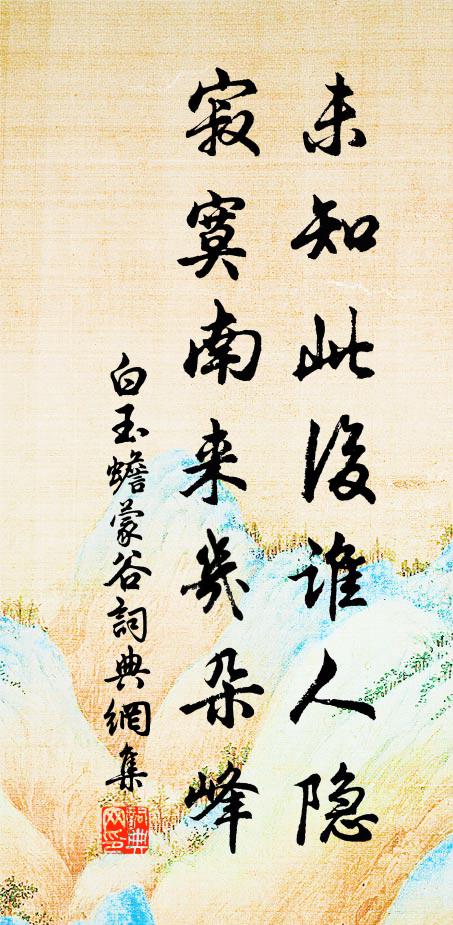 未知此後谁人隐
寂寞南来几朵峰
白玉蟾蒙谷詞典網集
詞典